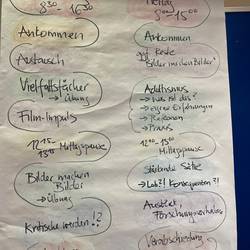 8³⁰ - 16³⁰
Ankommen
Austausch
Vielfaltsfächer
→ Übung
Film-Impuls
12¹⁵ -
13¹⁵ Mittagspause
Bilder machen
Bilder
→ Übung
Kritische werden!?
Freitag
- 15⁰⁰
Ankommen
auf Reste
"Bilder machen Bilder"
Adultismus
→ was ist das?
→ eigene Erfahrungen
→ Reflexion
→ Praxis
12⁰⁰ - 13⁰⁰
Mittagspause
Sätze
→ Lob?! Konsequenzen?!
Ausblick
Forschungsvorhaben
Verabschiedung